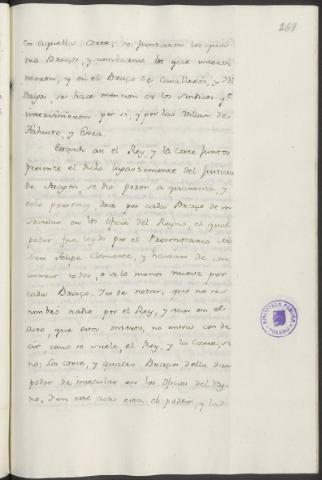 269
en aquellas Cortes, se juntaron los qua
tro Braços, y nombrame los que intervi
nieron, y en el Braço de Cavalleros, y Hi
dalgos, se hace mencion de los Sindicos q.e
intervinieron por si, y por las Villas de
y Exea.
Estando asi el Rey, y la Corte juntos
presente el dicho lugarteniente del Justicia
de Aragon, se dio poder a quarenta, y
ocho personas, doce por cada Braço de in
secular en los Oficios del Reyno, el qual
poder fue leydo por el Prothonotario
Felipe Clemente, y havian de con
currir todos, o a lo menos nueve por
cada Braço. Y es de notar, que no in
nombrò nadie por el Rey, y aun en el
acto, que està inserto, no entra con de
cir como se suele, el Rey, y la Corte, si
no; La corte, y quatro Braços della dan
poder de insecular en los Oficios del Rey
no. Iten este acto está el poder, y las
BIBLIOTECA PUBLICA
TOLEDO